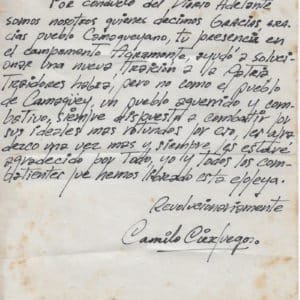 Por conducto del Diario Adelante
somos nosotros quienes decimos Gracias, gra-
cias pueblo Camagueyano, tu presencia en
el campamento Agramonte, ayudó a soluci-
onar una nueva traición a la Patria
Traidores habra, pero no como el pueblo
de Camagüey, un pueblo aguerrido y com-
bativo, siempre dispuesto a combatir por
sus ideales mas rotundos por eso, les agra-
dezco una vez mas y siempre les estaré
agradecido por todo, yo y todos los com-
batientes que hemos librado esta epopeya.
Revolucionariamente
Camilo Cienfuegos.